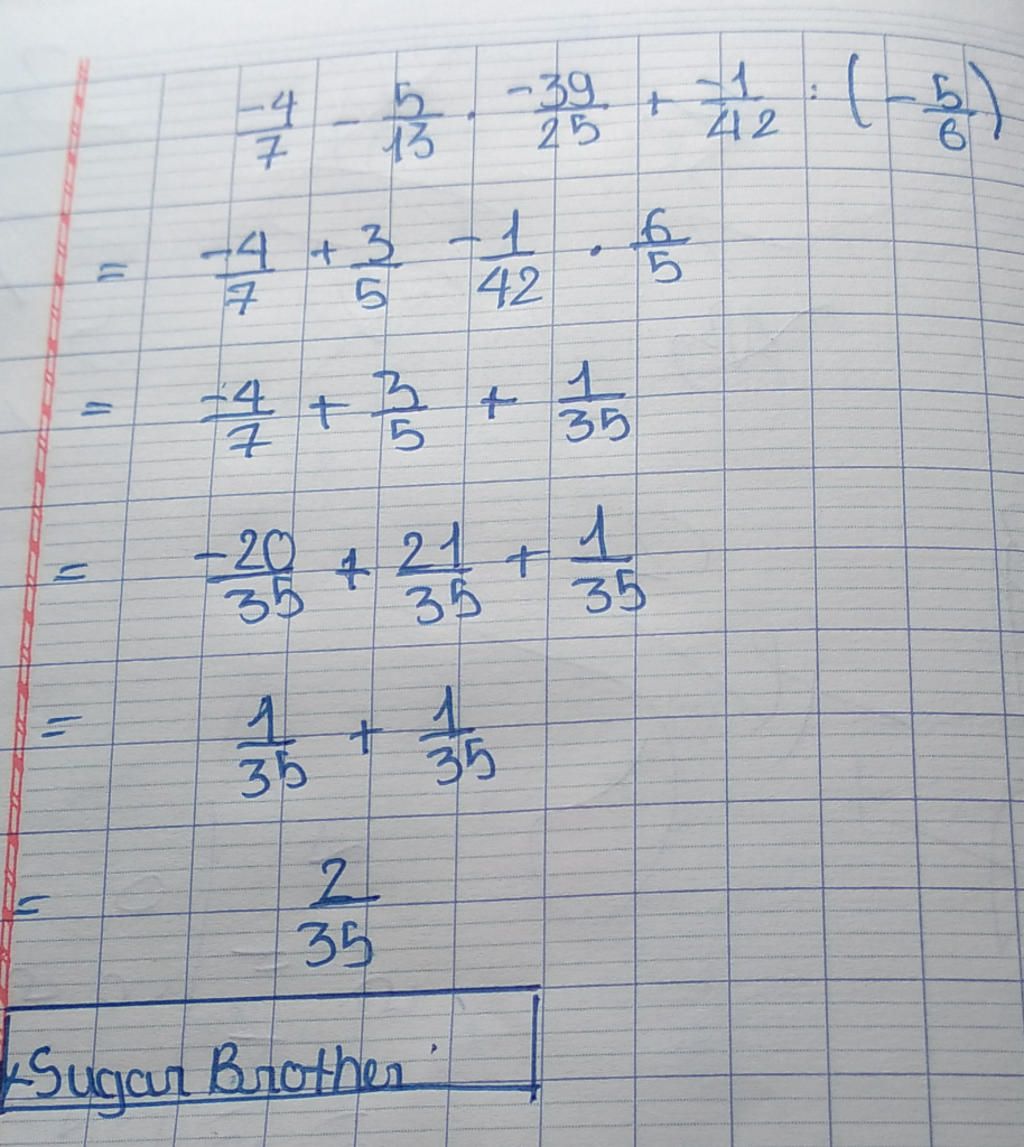 -4/7 - 5/13 . -39/25 + -1/42 : (-5/6)
= -4/7 + 3/5 - 1/42 . 6/5
= -4/7 + 3/5 + 1/35
= -20/35 + 21/35 + 1/35
= 1/35 + 1/35
= 2/35
Sugar Brother